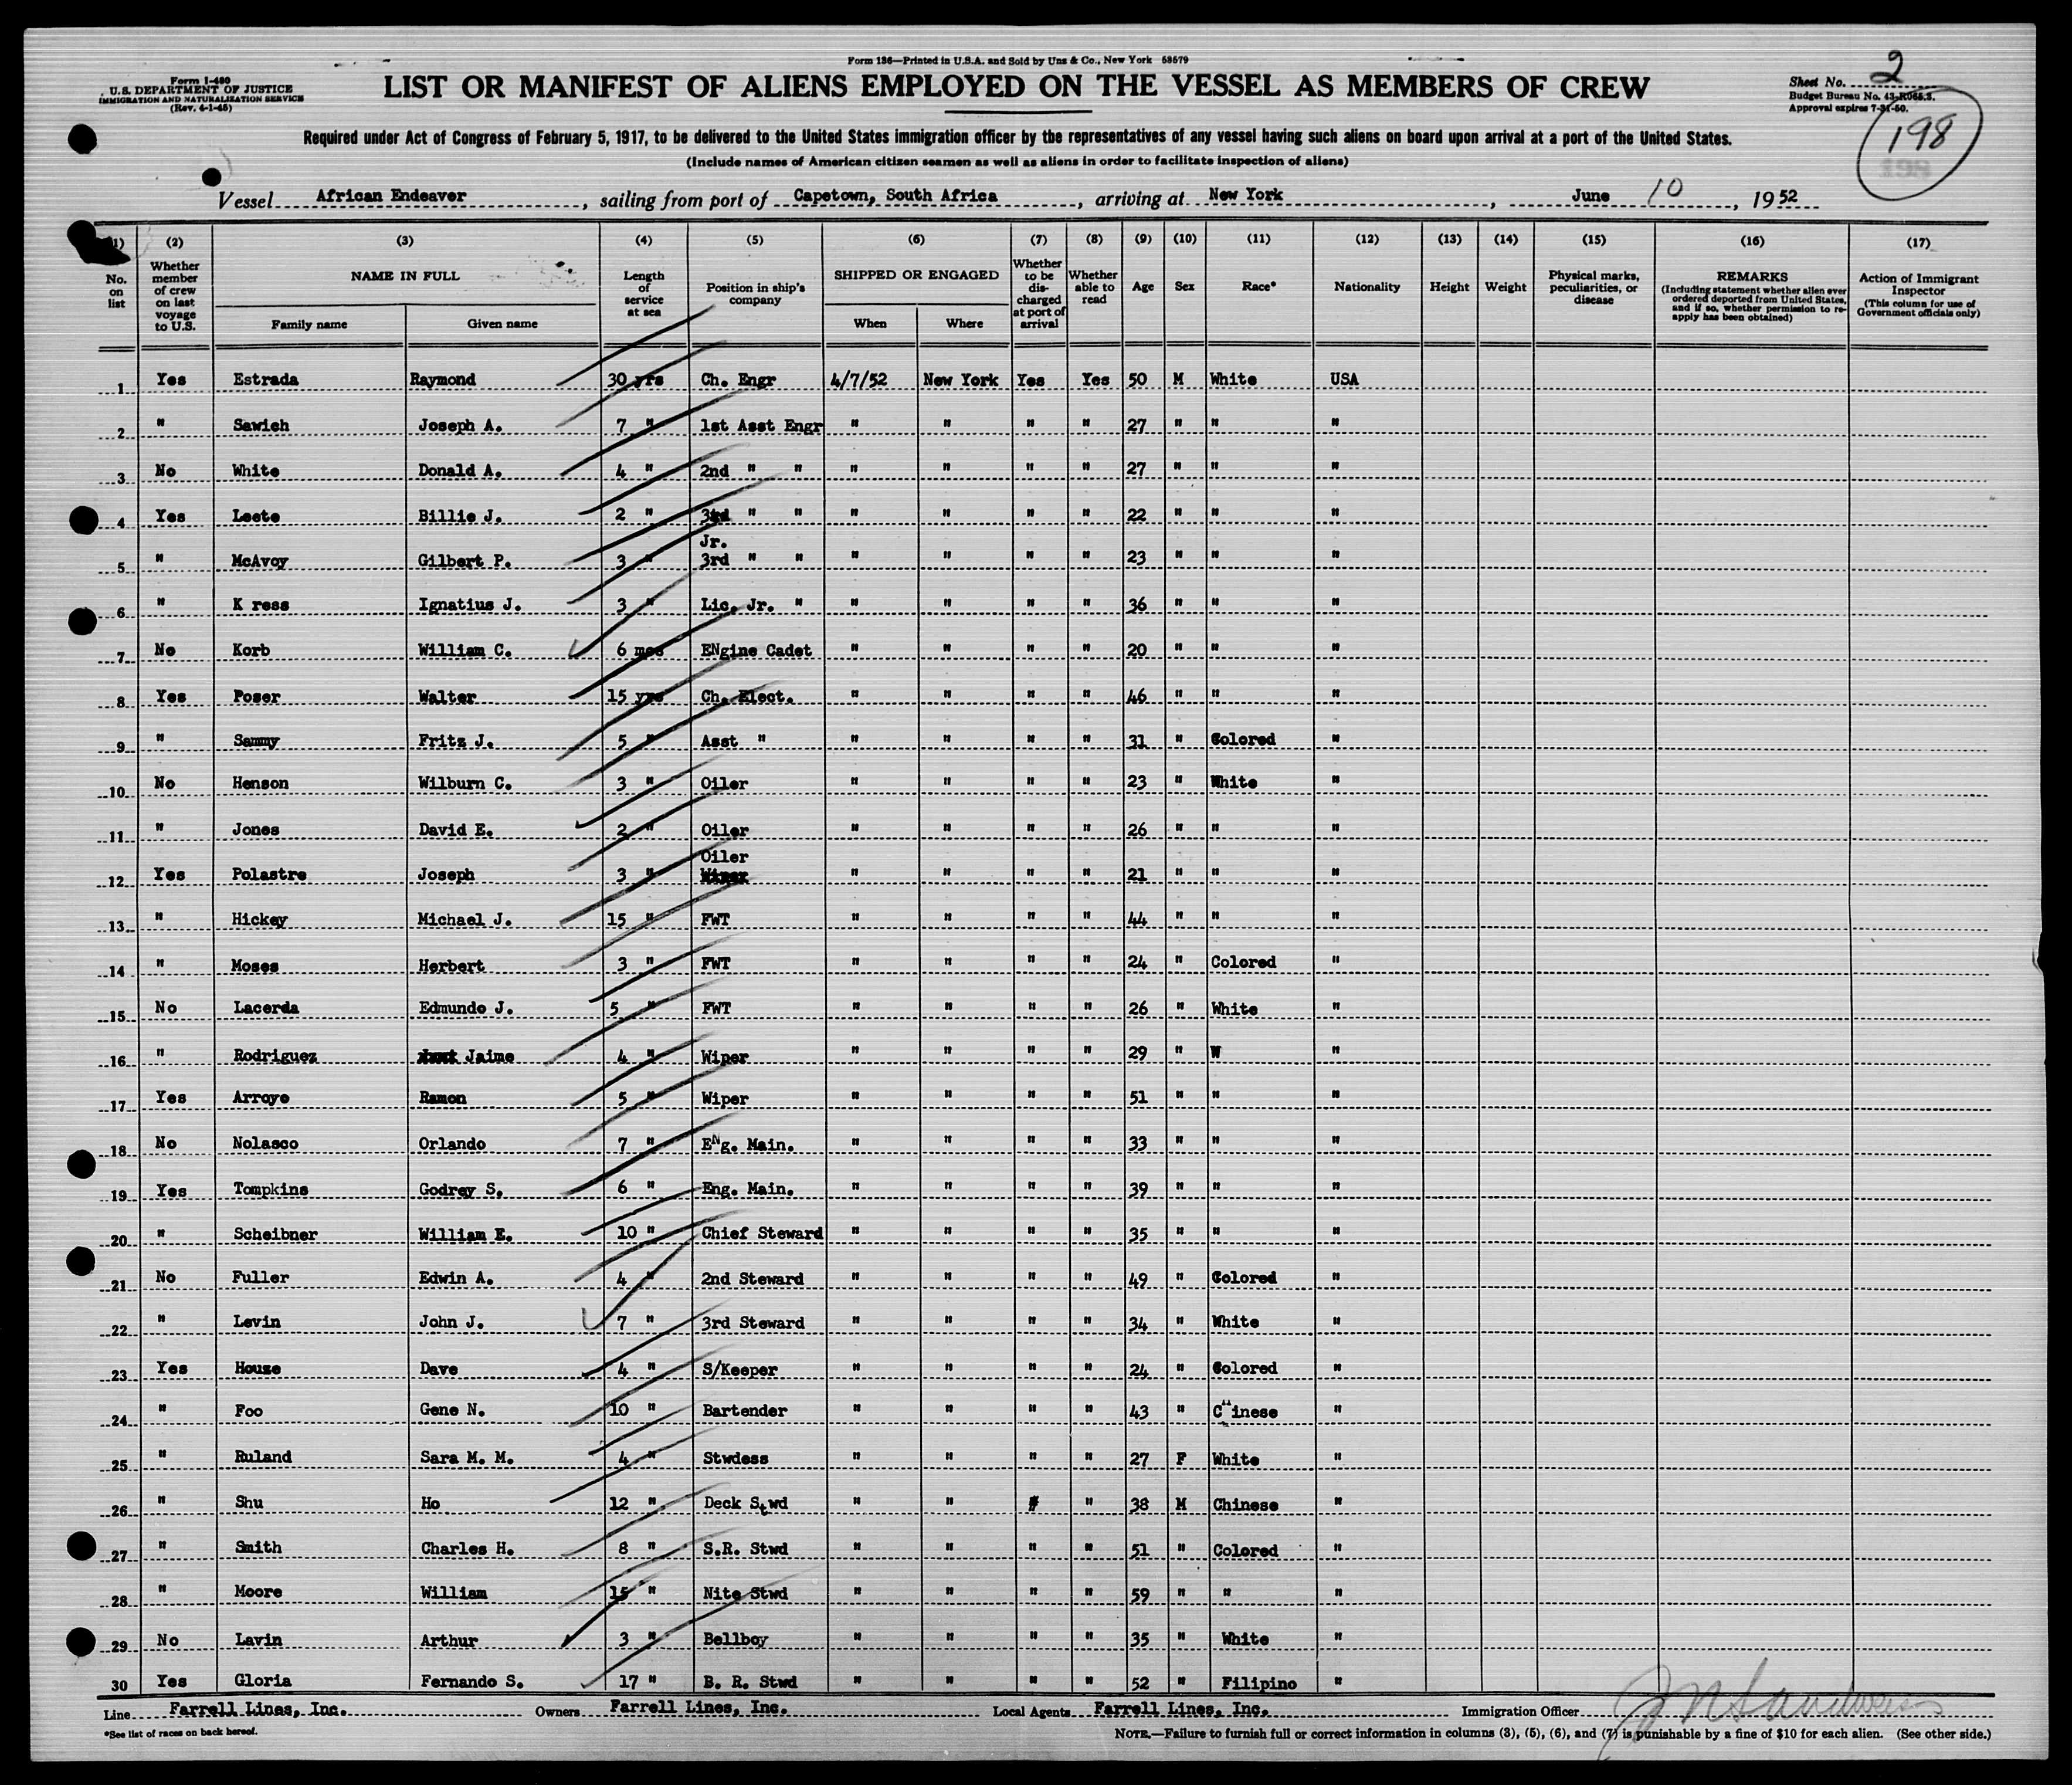 Form 136—Printed in U.S.A. and Sold by Unz & Co., New York 58579
Form I-480
U.S. DEPARTMENT OF JUSTICE
IMMIGRATION AND NATURALIZATION SERVICE
(Rev. 4-1-45)
LIST OR MANIFEST OF ALIENS EMPLOYED ON THE VESSEL AS MEMBERS OF CREW
Sheet No. 2
Budget Bureau No. 43-R065.3.
Approval expires 7-31-50.
198
198
Required under Act of Congress of February 5, 1917, to be delivered to the United States immigration officer by the representatives of any vessel having such aliens on board upon arrival at a port of the United States.
(Include names of American citizen seamen as well as aliens in order to facilitate inspection of aliens)
Vessel African Endeaver, sailing from port of Capetown, South Africa, arriving at New York, June 10, 1952
(1) (2) (3) (4) (5) (6) (7) (8) (9) (10) (11) (12) (13) (14) (15) (16) (17)
No. on list
Whether member of crew on last voyage to U.S.
NAME IN FULL
Family name Given name
Length of service at sea
Position in ship's company
SHIPPED OR ENGAGED
When Where
Whether to be discharged at port of arrival
Whether able to read
Age Sex Race* Nationality Height Weight
Physical marks, peculiarities, or disease
REMARKS
(Including statement whether alien ever ordered deported from United States, and if so, whether permission to re-apply has been obtained)
Action of Immigrant Inspector
(This column for use of Government officials only)
1 Yes Estrada Raymond 30 yrs Ch. Engr 4/7/52 New York Yes Yes 50 M White USA
2 " Sawich Joseph A. 7 " 1st Asst Engr " " " " 27 " " "
3 No White Donald A. 4 " 2nd " " " " " " 27 " " "
4 Yes Leete Billie J. 2 " 3rd " " " " " " 22 " " "
Jr.
5 " McAvoy Gilbert P. 3 " 3rd " " " " " " 23 " " "
6 " K ress Ignatius J. 3 " Lic. Jr. " " " " " 36 " " "
7 No Korb William C. 6 mos ENgine Cadet " " " " 20 " " "
8 Yes Poser Walter 15 yrs Ch. Elect. " " " " 46 " " "
9 " Sammy Fritz J. 5 " Asst " " " " " 31 " Colored "
10 No Henson Wilburn C. 3 " Oiler " " " " 23 " White "
11 " Jones David E. 2 " Oiler " " " " 26 " " "
Oiler
12 Yes Polastre Joseph 3 " Wiper " " " " 21 " " "
13 " Hickey Michael J. 15 " FWT " " " " 44 " " "
14 " Moses Herbert 3 " FWT " " " " 24 " Colored "
15 No Lacerda Edmundo J. 5 " FWT " " " " 26 " White "
16 " Rodriguez Jaime 4 " Wiper " " " " 29 " W "
17 Yes Arroyo Ramon 5 " Wiper " " " " 51 " " "
18 No Nolasco Orlando 7 " ENg. Main. " " " " 33 " " "
19 Yes Tompkins Godrey S. 6 " Eng. Main. " " " " 39 " " "
20 " Scheibner William E. 10 " Chief Steward " " " " 35 " " "
21 No Fuller Edwin A. 4 " 2nd Steward " " " " 49 " Colored "
22 " Levin John J. 7 " 3rd Steward " " " " 34 " White "
23 Yes House Dave 4 " S/Keeper " " " " 24 " Colored "
24 " Foo Gene N. 10 " Bartender " " " " 43 " Chinese "
25 " Ruland Sara M. M. 4 " Stwdess " " " " 27 F White "
26 " Shu Ho 12 " Deck Stwd " " " " 38 M Chinese "
27 " Smith Charles H. 8 " S.R. Stwd " " " " 51 " Colored "
28 " Moore William 15 " Nite Stwd " " " " 59 " " "
29 No Lavin Arthur 3 " Bellboy " " " " 35 " White "
30 Yes Gloria Fernando S. 17 " B. R. Stwd " " " " 52 " Filipino "
Line Farrell Lines, Inc. Owners Farrell Lines, Inc. Local Agents Farrell Lines, Inc. Immigration Officer
*See list of races on back hereof.
NOTE.—Failure to furnish full or correct information in columns (3), (5), (6), and (7) is punishable by a fine of $10 for each alien. (See other side.)